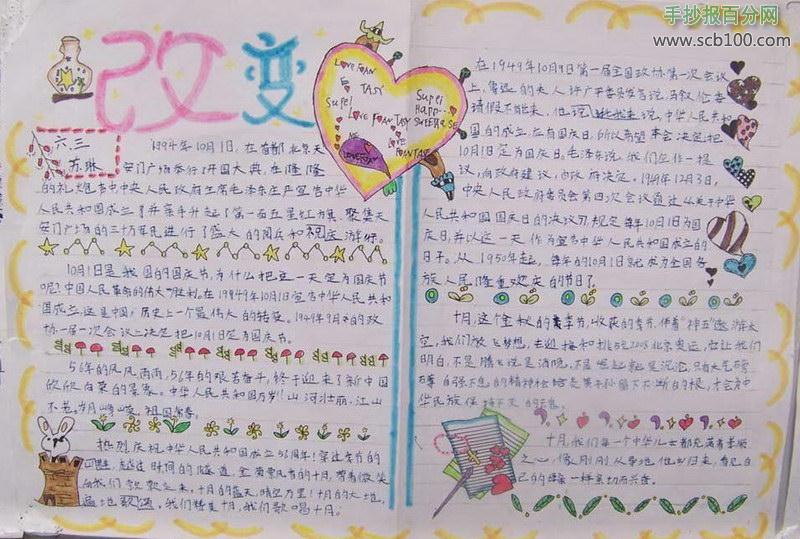 手抄报百分网
www.scb100.com
改变
LOVE FOAN
TASY
Supel
LOVE FOANTASY
Supel
Happ
LOVESTAY
六.三
苏琳
1994年10月1日,在首都北京天
安门广场举行了开国大典,在隆隆
的礼炮声中中央人民政府主席毛泽东庄严宣告中华
人民共和国成立了并亲手升起了第一面五星红旗 聚集天
安门广场的三十万军民进行了盛大的阅兵和祝庆游行。
10月1日是我国的国庆节,为什么把这一天定为国庆节
呢?中国人民革命的伟大胜利。在19949年10月1日宣告中华人民共和
国成立,这是中国历史上一个最伟大的转变。1949年9月的政
协一届一次会议上决定把10月1日定为国庆节。
56年的风风雨雨,56年的艰苦奋斗,终于迎来了新中国
欣欣向荣的景象。中华人民共和国万岁!山河壮丽,江山
不老。岁月峥嵘,祖国常春。
热烈庆祝中华人民共和国成立56周年!穿过岁月的
四野,越过时间的隧道,金黄飘香的十月,带着微笑
向我们款款走来。十月的蓝天,晴空万里!十月的大地,
遍地歌谣。我们赞美十月,我们歌唱十月。
在1949年10月9日第一届全国政协第一次会议
上,鲁迅的夫人许广平委员发言说,马叙伦委
请假不能来,他说 中华人民共和
国的成立,应有国庆日,所以希望本会决定把
10月1日定为国庆日。毛泽东说,我们应作一提
议,向政府建议,由政府决定。1949年12月3日,
中央人民政府委员会第四次会议通过从关于中华
人民共和国国庆日的决议力,规定每年10月1日为国
庆日,并以这一天作为宣告中华人民共和国成立的
日子。从1950年起,每年的10月1日就成为全国各
族人民隆重欢庆的节日了。
十月,这个金秋的季节,收获的季节,伴着"神五"遨游太
空,我们放飞梦想,去迎接和挑战2008北京奥运,它让我们
明白,不是腾飞就是消隐,不是崛起就是沉沦,只有大气磅
礴自强不息的精神才是 不断的根,才会有中
华民族保持不灭的
十月,我们每一个中华儿女都充满着幸
之心,像刚刚从异地他乡归来,看见自
己的母亲一样亲切而兴奋。